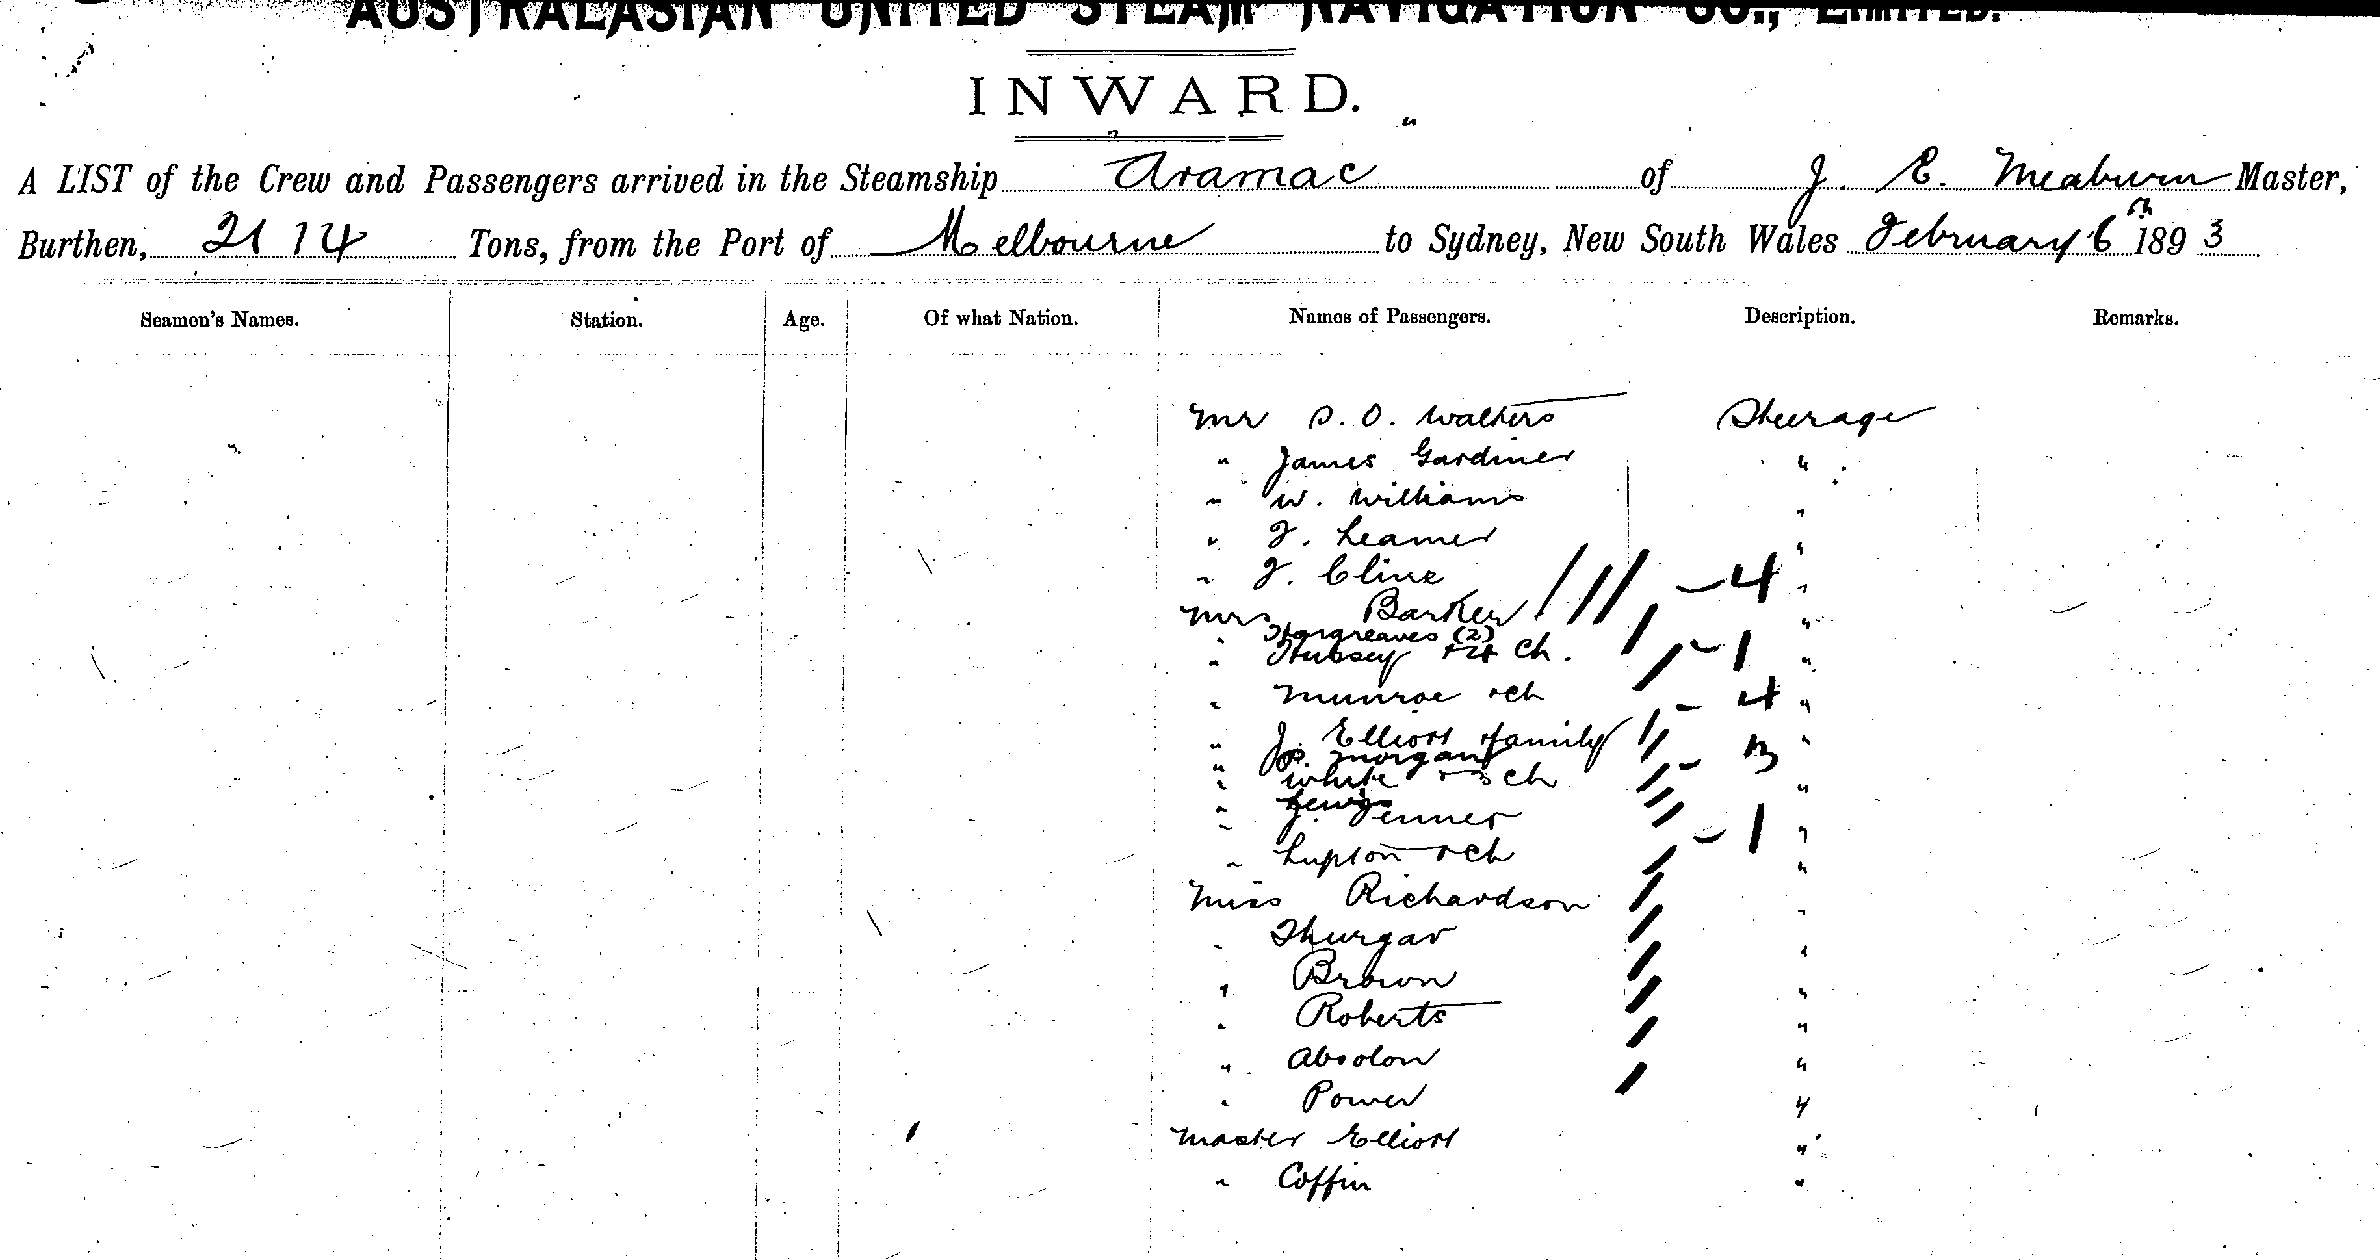 AUSTRALASIAN UNITED STEAM NAVIGATION CO., LIMITED.
INWARD.
A LIST of the Crew and Passengers arrived in the Steamship Aramac of J. E. Meaburn Master,
Burthen, 2114 Tons, from the Port of Melbourne to Sydney, New South Wales February 6th 1893
Seamen's Names. Station. Age. Of what Nation. Names of Passengers. Description. Remarks.
Mr S. O. Walters Steerage
" James Gardiner "
" W. Williams "
" J. Leamer "
" J. Cline - 4 "
Mrs Barker "
Hargreaves (2)
" Hussey + 4 ch. - 1 "
" Munroe + ch - 4 "
" J. Elliott + family "
" P. Morgan - 3
" White + 3 ch "
"
" J. Jenner - 1 "
" Lupton + ch "
Miss Richardson "
" Thurgar "
" Brown "
" Roberts "
" Absolon "
" Power "
Master Elliott "
" Coffin "